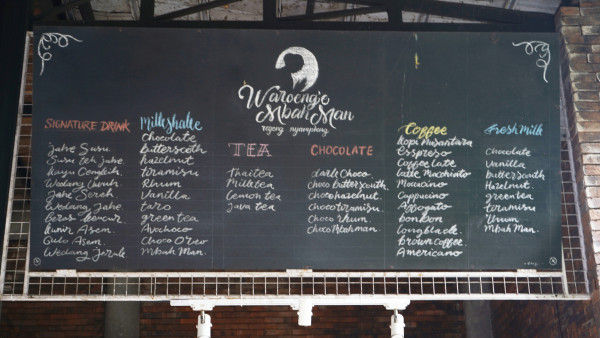 Waroeng'e
Mbah Man
SIGNATURE DRINK
Jahe Susu
Susu teh jahe
Kayu Cengkeh
Wedang Uwuh
Jahe Sereh
Wedang Jahe
Beras kencur
Kunir Asem
Gulo Asem
Wedang Jerole
Milkshake
Chocolate
butterscoth
hazelnut
tiramisu
Rhum
Vanilla
taro
green tea
Avochoco
Choco O'reo
Mbah Man
TEA
Thaitea
Milktea
lemon tea
Java tea
CHOCOLATE
dark Choco
choco butterscoth
choco hazelnut
choco tiramisu
choco rhum
choco Mbahman
Coffee
Kopi Nusantara
Espresso
Coffee latte
latte Macchiato
Mocacino
Cappucino
Affogato
bonbon
long black
brown coffee
Americano
Fresh Milk
Chocolate
Vanilla
butterscoth
Hazelnut
greentea
tiramisu
Rhum
Mbah Man